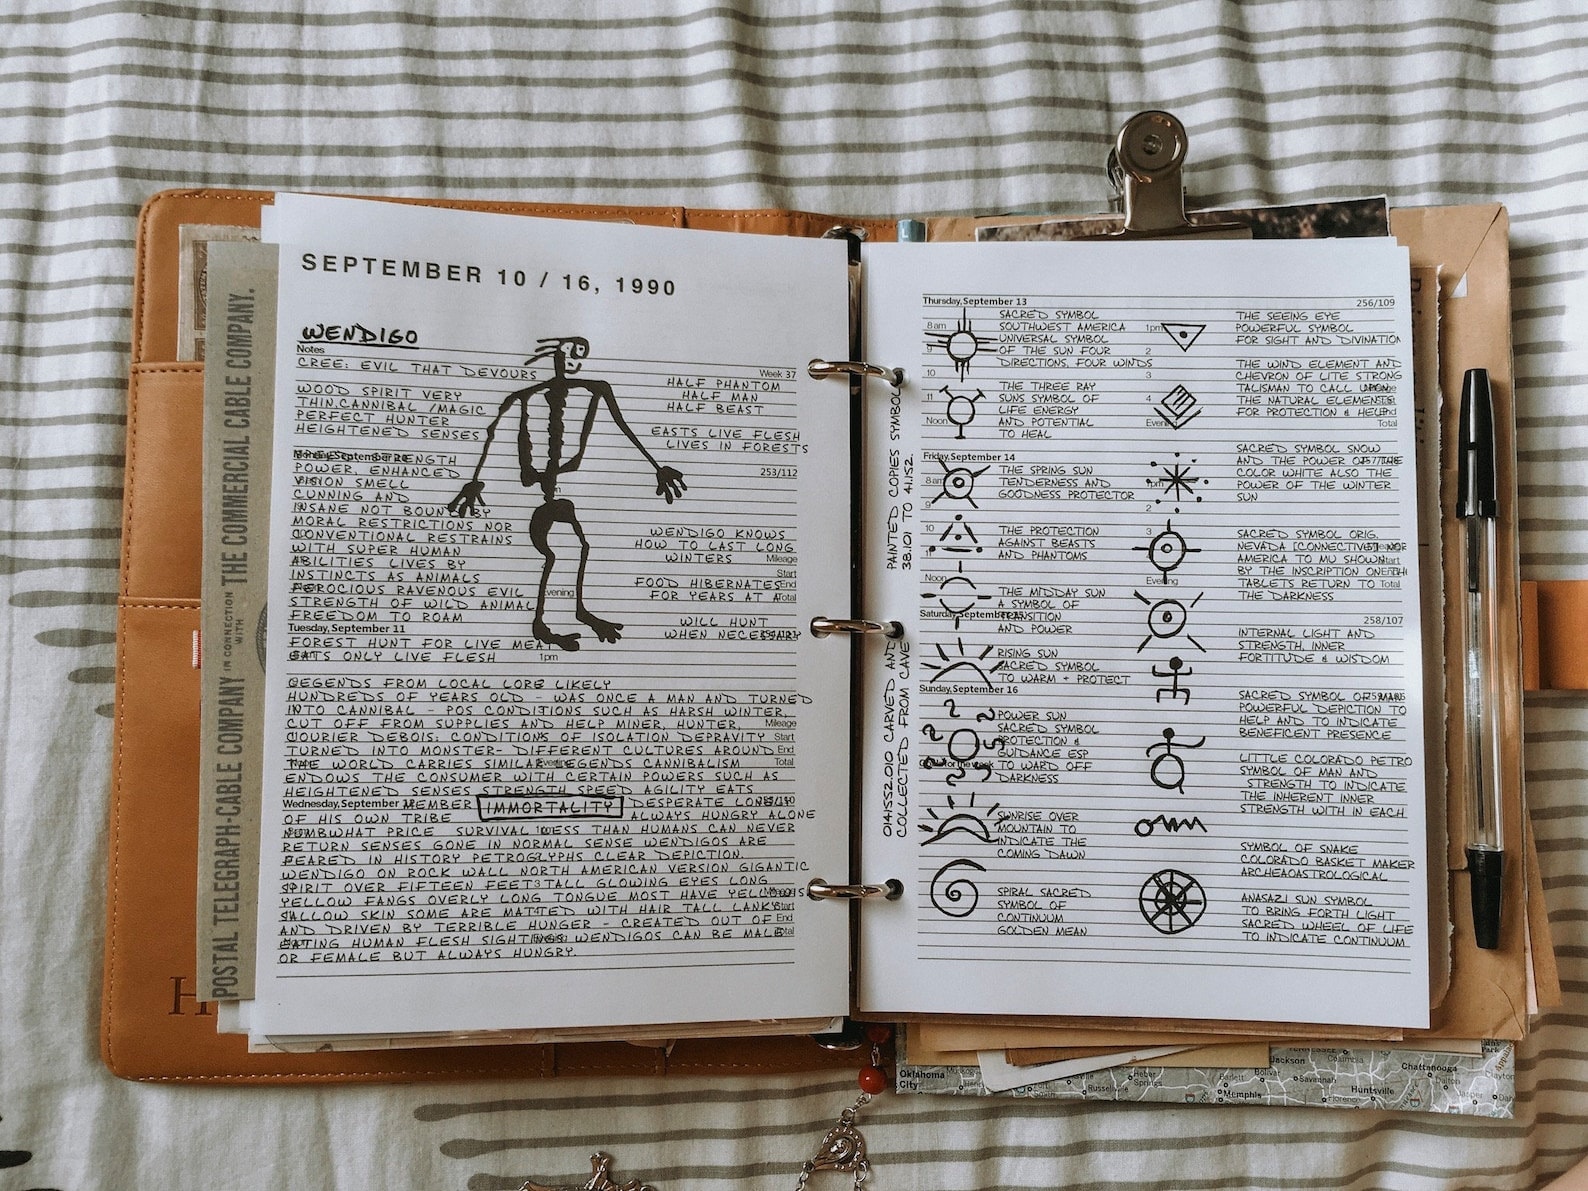 SEPTEMBER 10 / 16, 1990
WENDIGO
Notes
Week 37
CREE: EVIL THAT DEVOURS
WOOD SPIRIT VERY
THIN CANNIBAL /MAGIC
PERFECT HUNTER
HEIGHTENED SENSES
STRENGTH
253/112
POWER, ENHANCED
VISION SMELL
CUNNING AND
INSANE NOT BOUND BY
MORAL RESTRICTIONS NOR
CONVENTIONAL RESTRAINS
WITH SUPER HUMAN
ABILITIES LIVES BY
INSTINCTS AS ANIMALS
FEROCIOUS RAVENOUS EVIL
STRENGTH OF WILD ANIMAL
FREEDOM TO ROAM
Tuesday, September 11
FOREST HUNT FOR LIVE MEAT
EATS ONLY LIVE FLESH
1pm
HALF PHANTOM
HALF MAN
HALF BEAST
EASTS LIVE FLESH
LIVES IN FORESTS
WENDIGO KNOWS
HOW TO LAST LONG
WINTERS
Mileage
Start
FOOD HIBERNATES
End
FOR YEARS AT A
Total
WILL HUNT
WHEN NECESSARY
LEGENDS FROM LOCAL LORE LIKELY
HUNDREDS OF YEARS OLD - WAS ONCE A MAN AND TURNED
INTO CANNIBAL - POS CONDITIONS SUCH AS HARSH WINTER,
CUT OFF FROM SUPPLIES AND HELP MINER, HUNTER,
Mileage
COURIER DEBOIS: CONDITIONS OF ISOLATION DEPRAVITY
Start
TURNED INTO MONSTER- DIFFERENT CULTURES AROUND
End
THE WORLD CARRIES SIMILAR LEGENDS CANNIBALISM
Total
ENDOWS THE CONSUMER WITH CERTAIN POWERS SUCH AS
HEIGHTENED SENSES STRENGTH SPEED AGILITY EATS
Wednesday, September 12
MEMBER IMMORTALITY DESPERATE
OF HIS OWN TRIBE ALWAYS HUNGRY ALONE
WHAT PRICE SURVIVAL LESS THAN HUMANS CAN NEVER
RETURN SENSES GONE IN NORMAL SENSE WENDIGOS ARE
PEARED IN HISTORY PETROGLYPHS CLEAR DEPICTION.
WENDIGO ON ROCK WALL NORTH AMERICAN VERSION GIGANTIC
SPIRIT OVER FIFTEEN FEET TALL GLOWING EYES LONG
YELLOW FANGS OVERLY LONG TONGUE MOST HAVE YELLOWS
SALLOW SKIN SOME ARE MATTED WITH HAIR TALL LANKY
Start
AND DRIVEN BY TERRIBLE HUNGER - CREATED OUT OF
End
EATING HUMAN FLESH SIGHTINGS WENDIGOS CAN BE MALE
Total
OR FEMALE BUT ALWAYS HUNGRY.
POSTAL TELEGRAPH-CABLE COMPANY IN CONNECTION WITH THE COMMERCIAL CABLE COMPANY.
H
PAINTED COPIES SYMBOL
38.101 TO 41.152
014.1552.010 CARVED AND
COLLECTED FROM CAVE
Thursday, September 13
256/109
8am
9
10
11
Noon
SACRED SYMBOL
SOUTHWEST AMERICA
UNIVERSAL SYMBOL
OF THE SUN FOUR
DIRECTIONS, FOUR WINDS
THE THREE RAY
SUNS SYMBOL OF
LIFE ENERGY
AND POTENTIAL
TO HEAL
Friday, September 14
8am
9
THE SPRING SUN
TENDERNESS AND
GOODNESS PROTECTOR
10
11
THE PROTECTION
AGAINST BEASTS
AND PHANTOMS
Noon
THE MIDDAY SUN
A SYMBOL OF
TRANSITION
AND POWER
Saturday, September 15
RISING SUN
SACRED SYMBOL
TO WARM + PROTECT
Sunday, September 16
POWER SUN
SACRED SYMBOL
PROTECTION &
GUIDANCE ESP
TO WARD OFF
DARKNESS
SUNRISE OVER
MOUNTAIN TO
INDICATE THE
COMING DAWN
SPIRAL SACRED
SYMBOL OF
CONTINUUM
GOLDEN MEAN
1pm
2
3
4
Evening
THE SEEING EYE
POWERFUL SYMBOL
FOR SIGHT AND DIVINATION
THE WIND ELEMENT AND
CHEVRON OF LITE STRONG
TALISMAN TO CALL UPON
THE NATURAL ELEMENTS
FOR PROTECTION & HELP
Total
SACRED SYMBOL SNOW
AND THE POWER OF THE
COLOR WHITE ALSO THE
POWER OF THE WINTER
SUN
1pm
2
3
Evening
SACRED SYMBOL ORIG.
NEVADA [CONNECTIVE] NOR
AMERICA TO MU SHOWN
BY THE INSCRIPTION ON TH
TABLETS RETURN TO
Total
THE DARKNESS
258/107
INTERNAL LIGHT AND
STRENGTH, INNER
FORTITUDE & WISDOM
SACRED SYMBOL OF MAN
POWERFUL DEPICTION TO
HELP AND TO INDICATE
BENEFICENT PRESENCE
LITTLE COLORADO PETRO
SYMBOL OF MAN AND
STRENGTH TO INDICATE
THE INHERENT INNER
STRENGTH WITH IN EACH
SYMBOL OF SNAKE
COLORADO BASKET MAKER
ARCHEAOASTROLOGICAL
ANASAZI SUN SYMBOL
TO BRING FORTH LIGHT
SACRED WHEEL OF LIFE
TO INDICATE CONTINUUM
Oklahoma City
TENNESSEE
Columbia
Jackson
Chattanooga
Dayton
Bolivar
Savannah
Dalton
Heber Springs
Bartlett
Huntsville
Russellville
Memphis
Florence